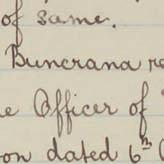 of same.
Buncrana re
e Officer of
on dated 6th